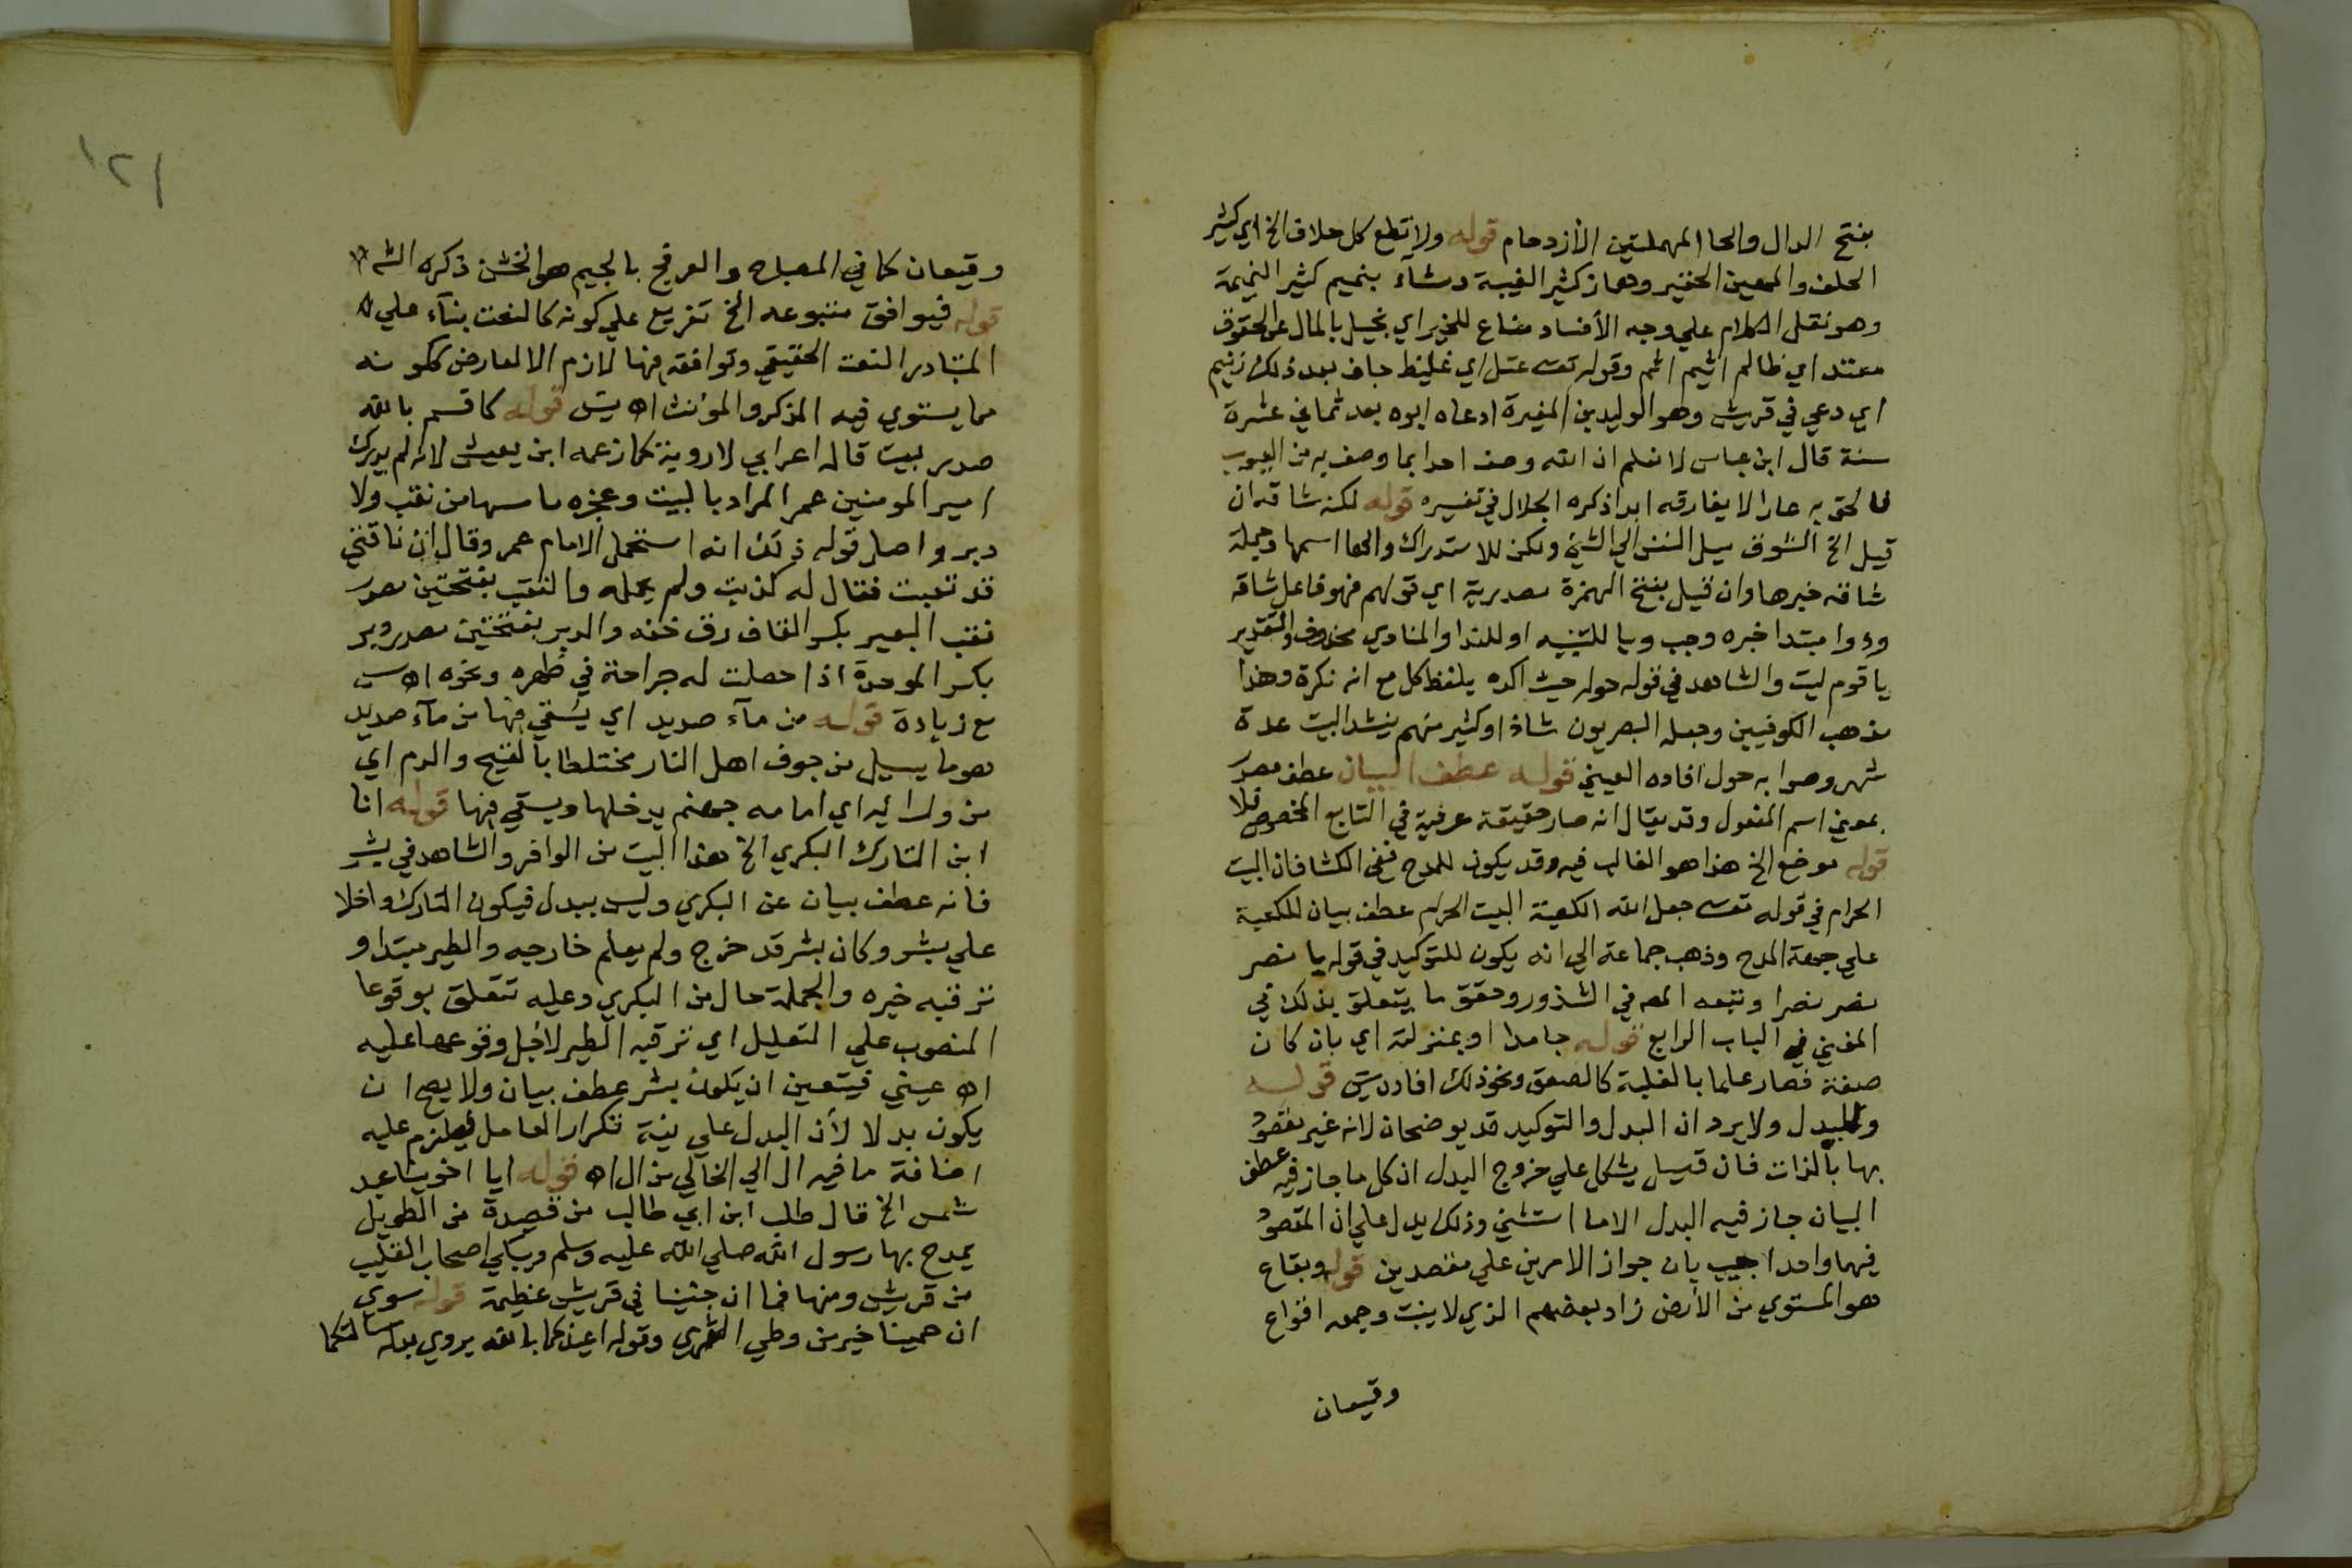 بفتح الدال والحا المهملتين الأزدحام قوله ولا تطع كل حلاف الخ اي كثير
الحلف والمهين الحقير وهماز كثير الغيبة ومشآء بنميم كثير النميمة
وهو نقل الكلام علي وجه الأفساد مناع للخير اي بخيل بالمال عن الحقوق
معتد اي ظالم اثيم اثم وقوله تعـ عتل اي غليظ جاف بعد ذلك زنيم
اي دعي في قريش وهو الوليد بن المغيرة ادعاه ابوه بعد ثماني عشرة
سنة قال ابن عباس لا نعلم ان الله وصف احدا بما وصف به من العيوب
فالحق به عارا لا يفارقه ابدا ذكره الجلال في تفسيره قوله لكنه شاقه ان
قيل الخ الشوق ميل النفس الي الشيئ ولكن للاستدراك والها اسمها وجملة
شاقه خبرها وان قيل بفتح الهمزة مصدرية اي قولهم فهو فاعل شاقه
وذا مبتدا خبره رجب ويا للتنبيه او للندا والمنادي محذوف والتقدير
يا قوم ليت والشاهد في قوله حوله حيث اكده بلفظ كل مع انه نكرة وهذا
مذهب الكوفيين وجعله البصريون شاذا وكثير منهم ينشد البيت عدة
شهر وصوابه حول افاده العيني قوله عطف البيان عطف مصدر
بمعني اسم المفعول وقد يقال انه صار حقيقة عرفية في التابع المخصوص فلا
قوله موضح الخ هذا هو الغالب فيه وقد يكون للمدح ففي الكشاف ان البيت
الحرام في قوله تعـ جعل الله الكعبة البيت الحرام عطف بيان للكعبة
علي جهة المدح وذهب جماعة الي انه يكون للتوكيد في قوله يا نصر
نصر نصرا وتبعه المص في الشذور وحقق ما يتعلق بذلك في
المغني في الباب الرابع قوله جامدا او بمنزلته اي بان كان
صفة فصار علما بالغلبة كالصعق ونحو ذلك افاده يس قوله
والبدل ولا يرد ان البدل والتوكيد قد يوضحان لانه غير مقصود
بها بالذات فان قيل يشكل علي خروج البدل ان كل ما جاز فيه عطف
البيان جاز فيه البدل الا ما استثني وذلك يدل علي ان المقصود
فيهما واحد اجيب بان جواز الامرين علي مقصدين قوله وبقاع
هو المستوي من الأرض زاد بعضهم الذي لا ينبت وجمعه اقواع
وقيعان
١٢١
وقيعان كما في المصباح والعرفج بالجيم هو الخشن ذكره الشـ
قوله فيوافق متبوعه الخ تفريع علي كونه كالنعت بنآء علي
المتبادر النعت الحقيقي وتوافقه فيها لازم الا لعارض ككونه
مما يستوي فيه المذكر والمؤنث اهـ يس قوله كاقسم بالله
صدر بيت قاله اعرابي لا روبة كما زعمه ابن يعيش لانه لم يدرك
امير المومنين عمر المراد بالبيت وعجزه ما مسها من نقب ولا
دبر واصل قوله ذلك انه استحمل الامام عمر وقال ان ناقتي
قد نقبت فقال له كذبت ولم يحمله والنقب بفتحتين مصدر
نقب البعير بكسر القاف رق خفه والدبر بفتحتين مصدر دبر
بكسر الموحدة اذا حصلت له جراحة في ظهره ونحوه اهـ س
مع زيادة قوله من مآء صديد اي يسقي فيها من مآء صديد
هو ما يسيل من جوف اهل النار مختلطا بالقيح والدم اي
من ورايه اي امامه جهنم يدخلها ويسقي فيها قوله انا
ابن التارك البكري الخ هذا البيت من الوافر والشاهد في بشر
فانه عطف بيان عن البكري وليس ببدل فيكون التارك داخلا
علي بشر وكان بشر قد خرج ولم يعلم خارجيه والطير مبتدا و
ترقبه خبره والجملة حال من البكري وعليه تتعلق بوقوعا
المنصوب علي التعليل اي ترقبه الطير لاجل وقوعها عليه
اهـ عيني فيتعين ان يكون بشر عطف بيان ولا يصح ان
يكون بدلا لأن البدل علي نية تكرار العامل فيلزم عليه
اضافة ما فيه ال الي الخالي من ال اهـ قوله ايا اخوينا عبد
شمس الخ قال طالب ابن ابي طالب من قصيدة من الطويل
يمدح بها رسول الله صلي الله عليه وسلم ويبكي اصحاب القليب
من قريش ومنها فما ان جنينا في قريش عظيمة قوله سوي
ان حمينا خير من وطي الثري وقوله اعيذكما بالله يروي بدله سالتكما